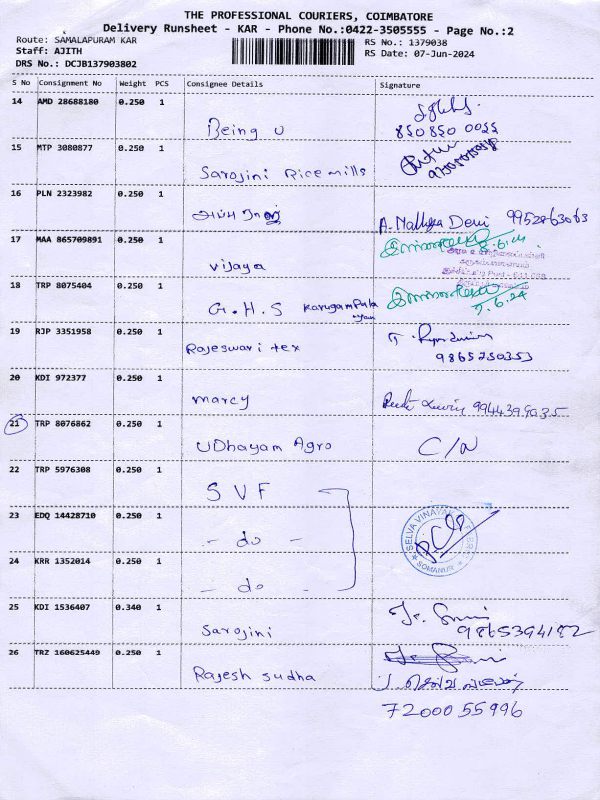 THE PROFESSIONAL COURIERS, COIMBATORE
Delivery Runsheet - KAR - Phone No.:0422-3505555 - Page No.:2
Route: SAMALAPURAM KAR
RS No.: 1379038
Staff: AJITH
RS Date: 07-Jun-2024
DRS No.: DCJB137903802
S No Consignment No Weight PCS Consignee Details Signature
14 AMD 28688180 0.250 1 Being U
850 850 0055
15 MTP 3080877 0.250 1 Sarojini Rice mills
16 PLN 2323982 0.250 1
A. Malliga Devi 9952863063
17 MAA 865709891 0.250 1 Vijaya
18 TRP 8075404 0.250 1 G.H.S
7.6.24
19 RJP 3351958 0.250 1 Rajeswari tex
9865250353
20 KDI 972377 0.250 1 Marcy
9944399035
21 TRP 8076862 0.250 1 UDhayam Agro C/N
22 TRP 5976308 0.250 1 SVF
23 EDQ 14428710 0.250 1 - do -
SELVA VINAYAK
SOMANUR
24 KRR 1352014 0.250 1 - do -
25 KDI 1536407 0.340 1 Sarojini
9865394182
26 TRZ 160625449 0.250 1 Rajesh sudha
72000 55996